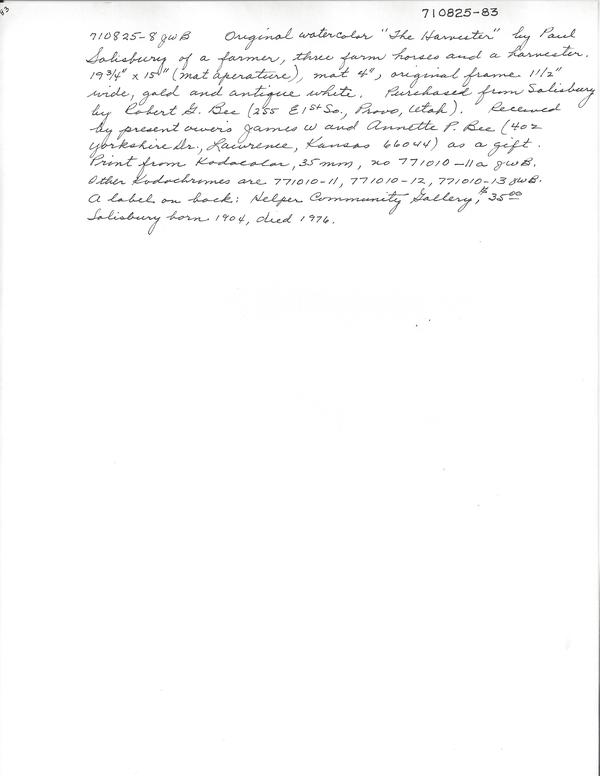 710825-83
710825-8 JWB Original watercolor "The Harvester" by Paul
Salisbury of a farmer, three farm horses and a harvester.
19 3/4" x 15" (mat aperature), mat 4", original frame 1 1/2"
wide, gold and antique white. Purchased from Salisbury
by Robert G. Bee (255 E 1st So., Provo, Utah). Received
by present owers James W and Annette P. Bee (402
Yorkshire Dr., Lawrence, Kansas 66044) as a gift.
Print from Kodacolor, 35 mm, no 771010-11a JWB.
Other Kodochromes are 771010-11, 771010-12, 771010-13 JWB.
A label on back: Helper Community Gallery, $35.00
Salisbury born 1904, died 1976.